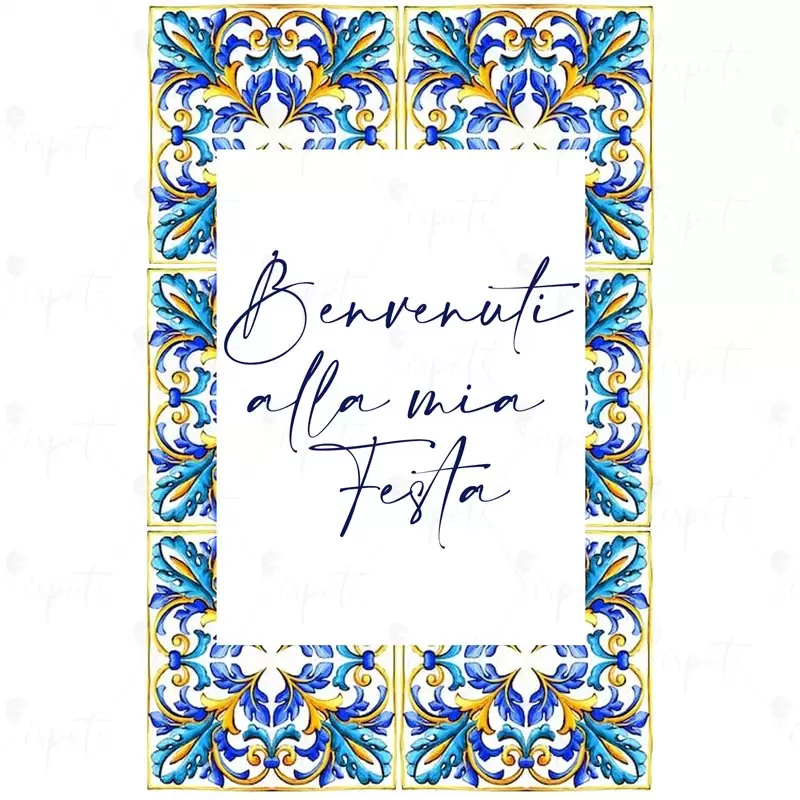 Benvenuti
alla mia
Festa